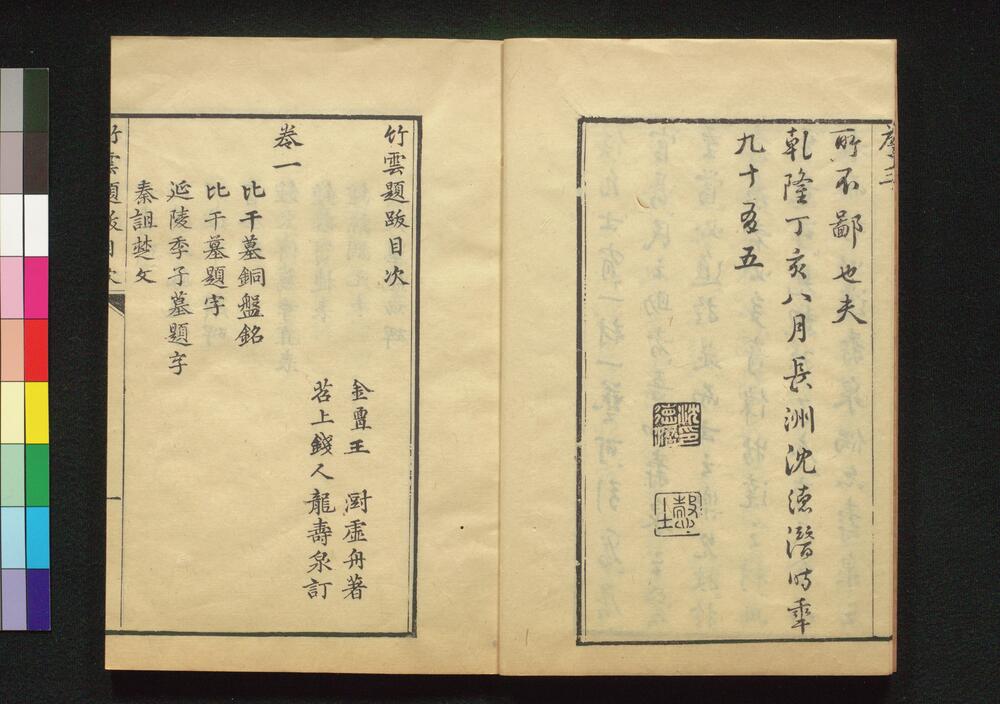 序三
所不鄙也夫
乾隆丁亥八月長洲沈德潛時年
九十有五
沈印德潛
慤士
竹雲題跋目次
金壇王 澍虛舟著
苕上錢人龍壽泉訂
卷一
比干墓銅盤銘
比干墓題字
延陵季子墓題字
秦詛楚文
竹雲題跋目次 一